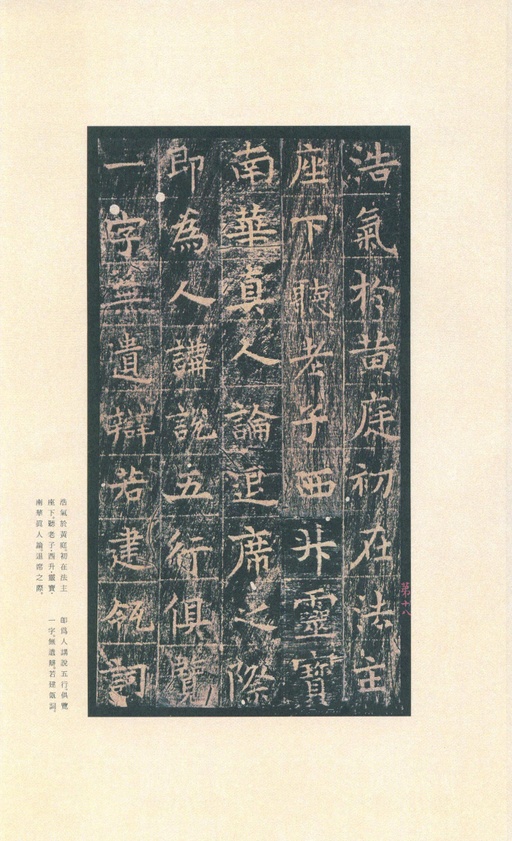 浩氣於黃庭初在法主
座下聽老子西升靈寶
南華真人論退席之際
即為人講說五行俱覽
一字無遺辯若建瓴詞
第十八
浩氣於黃庭。初在法主
座下。聽老子·西升靈寶·
南華真人論。退席之際。
即為人講說。五行俱覽
一字無遺。辯若建瓴。詞